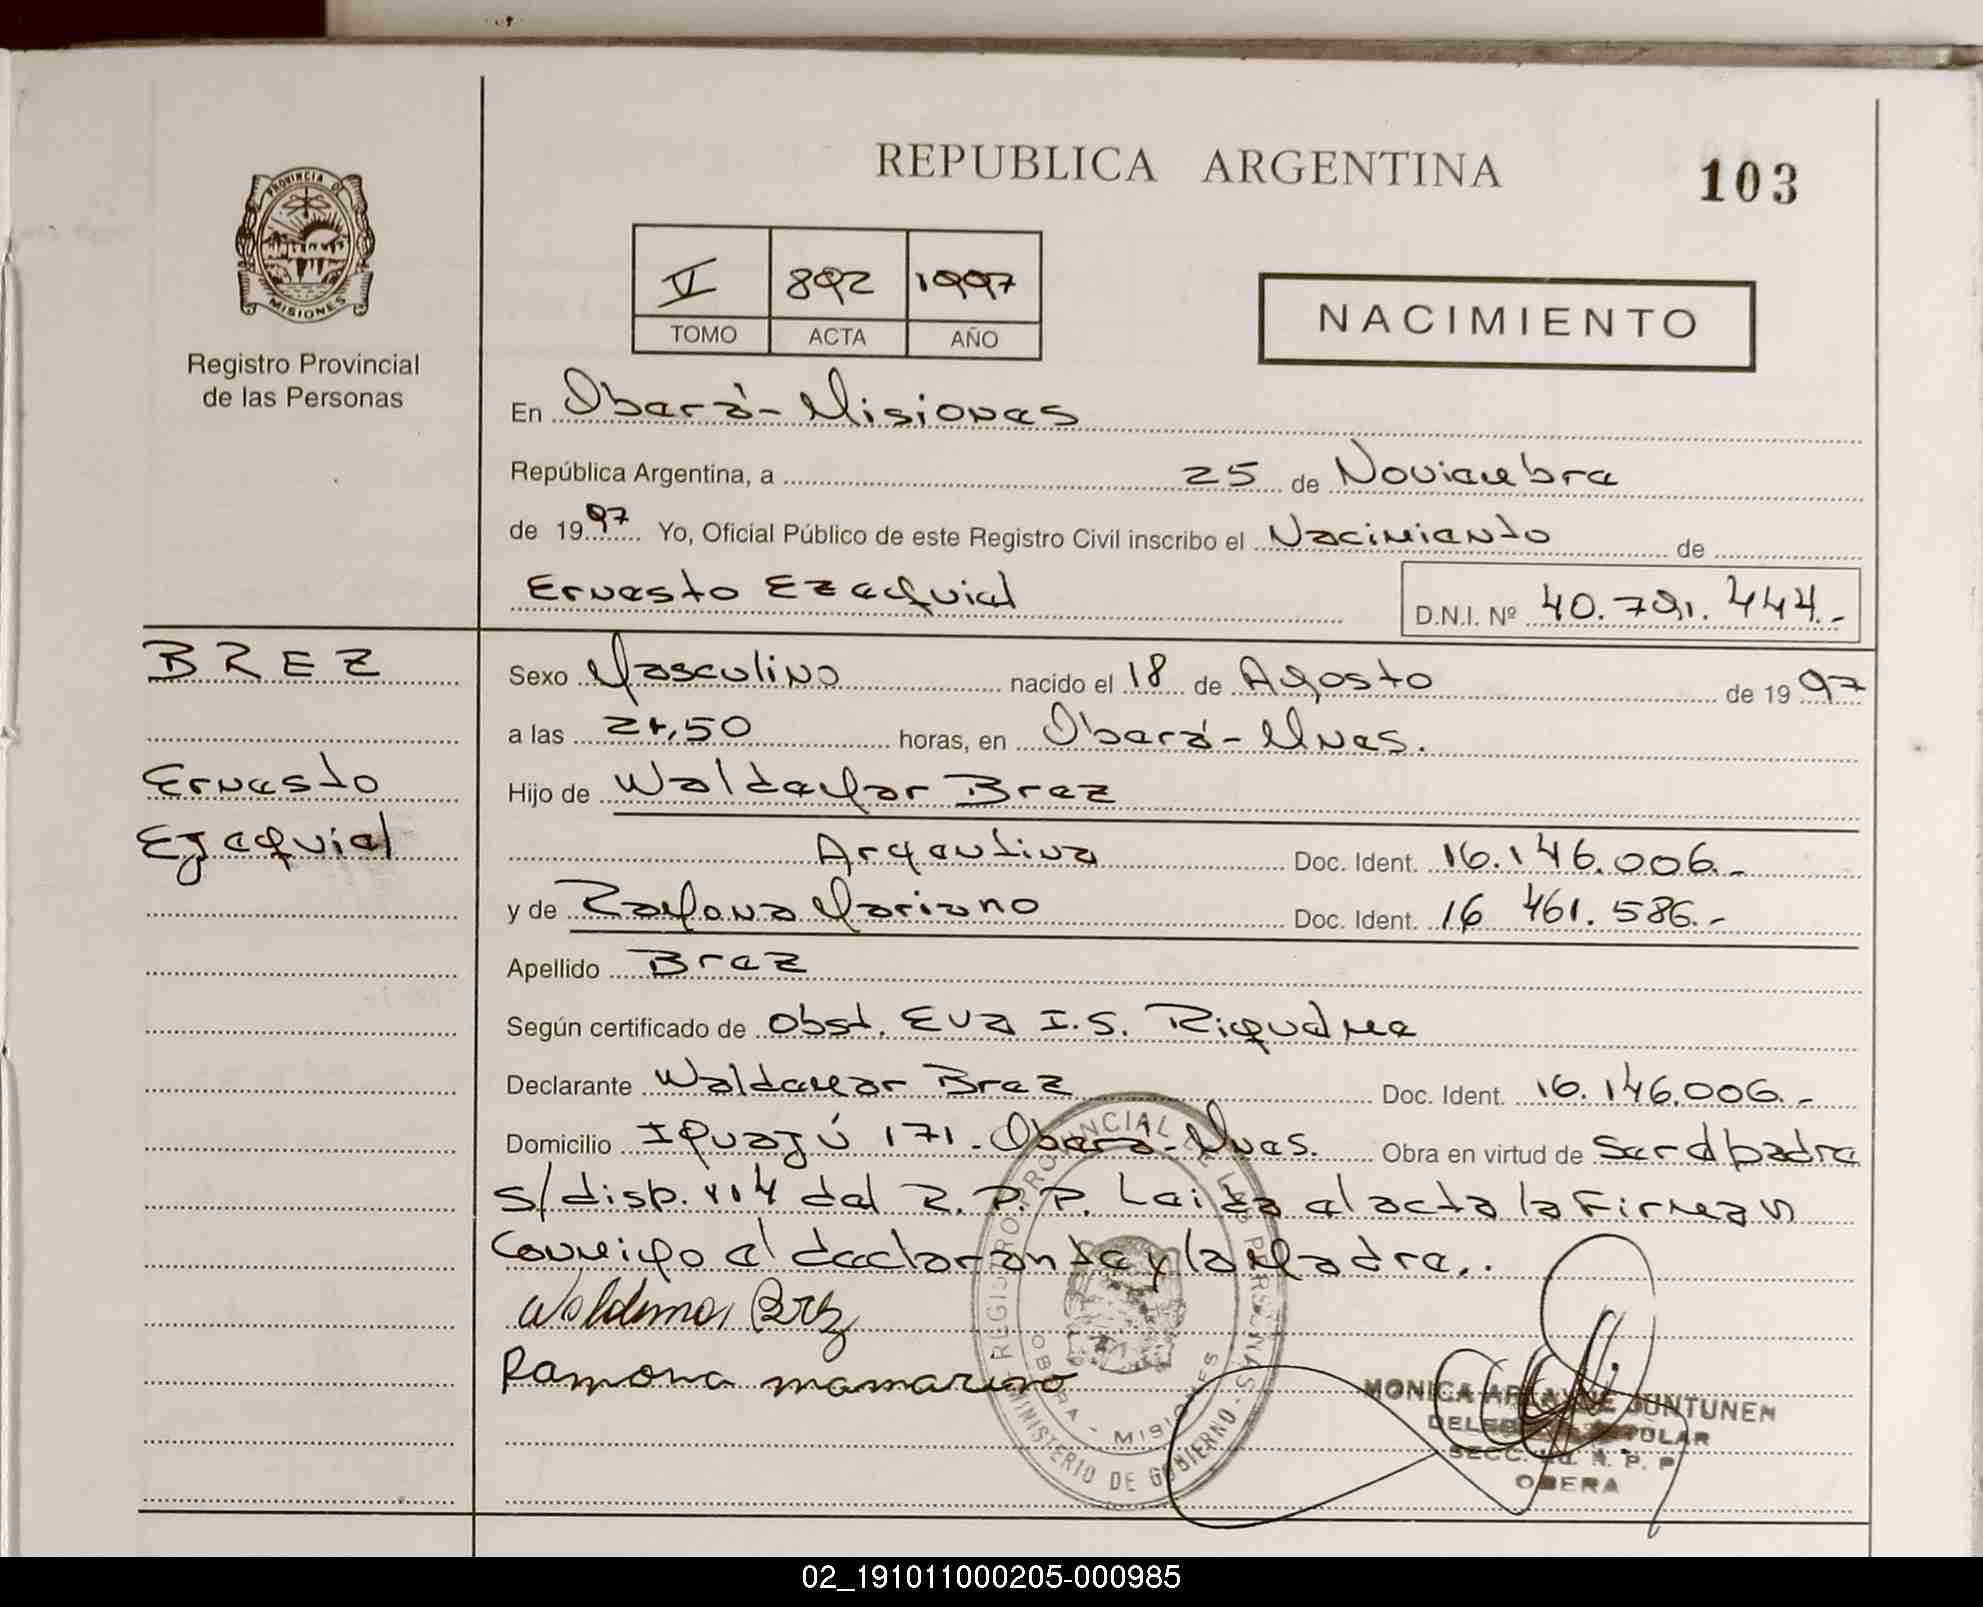 REPUBLICA ARGENTINA
103
PROVINCIA DE
MISIONES
Registro Provincial
de las Personas
V 892 1997
TOMO ACTA AÑO
NACIMIENTO
En Oberá - Misiones
República Argentina, a 25 de Noviembre
de 1997 Yo, Oficial Público de este Registro Civil inscribo el Nacimiento de
Ernesto Ezequiel D.N.I. Nº 40.791.444.-
BREZ
Ernesto
Ezequiel
Sexo Masculino nacido el 18 de Agosto de 1997
a las 21,50 horas, en Oberá - Mnes.
Hijo de Waldemar Brez
Argentina Doc. Ident. 16.146.006.-
y de Ramona Mariano Doc. Ident. 16 461.586.-
Apellido Brez
Según certificado de Obst. Eva I.S.
Declarante Waldemar Brez Doc. Ident. 16.146.006.-
Domicilio Iguazú 171 - Oberá - Mnes. Obra en virtud de ser el padre
s/disp. 404 del R.P.P. Leida el acta la Firman
Conmigo el declarante y la Madre..
Waldemar Brez
Ramona
REGISTRO PROVINCIAL DE LAS PERSONAS - MINISTERIO DE GOBIERNO -
OBERA - MISIONES
MONICA JUNTUNEN
TITULAR
SECC. R. P. P.
OBERA
02_191011000205-000985